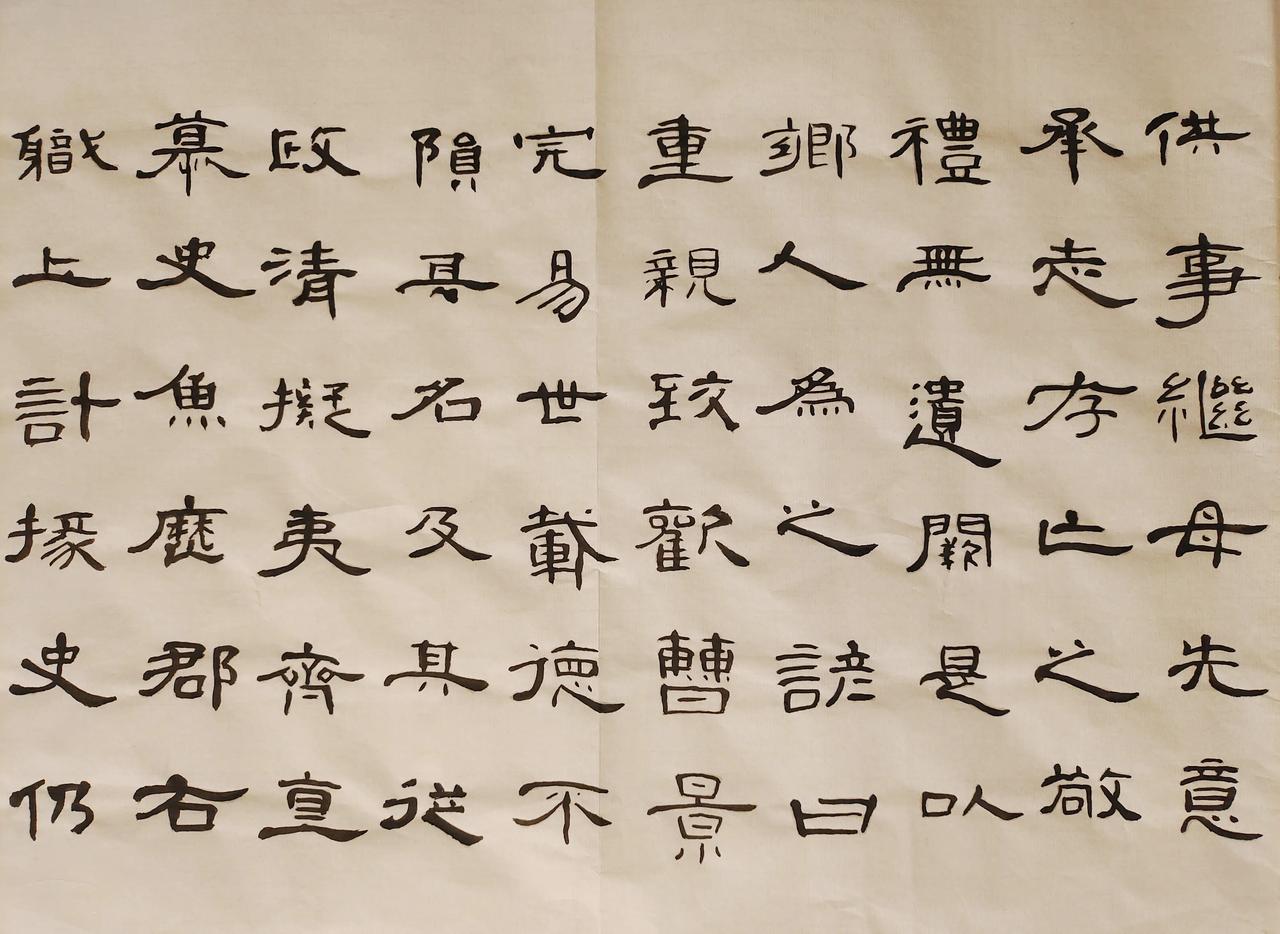 供事繼母先意
承志存亡之敬
禮無遺闕是以
鄉人為之諺曰
重親致歡曹景
完易世載德不
隕其名及其從
政清擬夷齊直
慕史魚歷郡右
職上計掾史仍